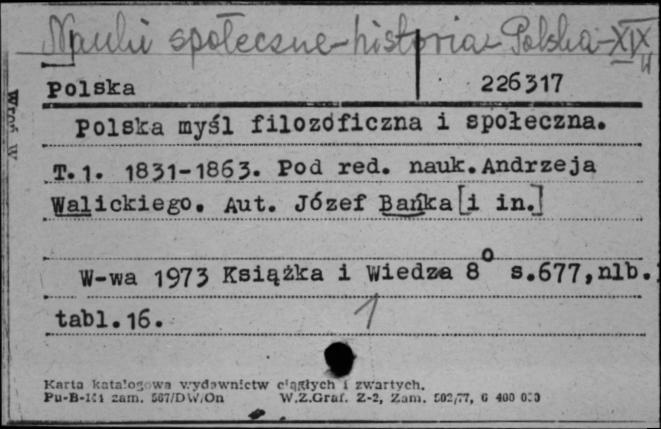 Nauki społeczne - historia - Polska - XIX w
Polska 226317
Polska myśl filozoficzna i społeczna.
T.1. 1831-1863. Pod red. nauk.Andrzeja
Walickiego. Aut. Józef Bańka[i in.]
W-wa 1973 Książka i Wiedza 8° s.677,nlb.
tabl.16.
1
Karta katalogowa wydawnictw ciągłych i zwartych.
Pu-B-1 zam. 567/DW/On W.Z.Graf. Z-2, Zam. 502/77, 6 400 000